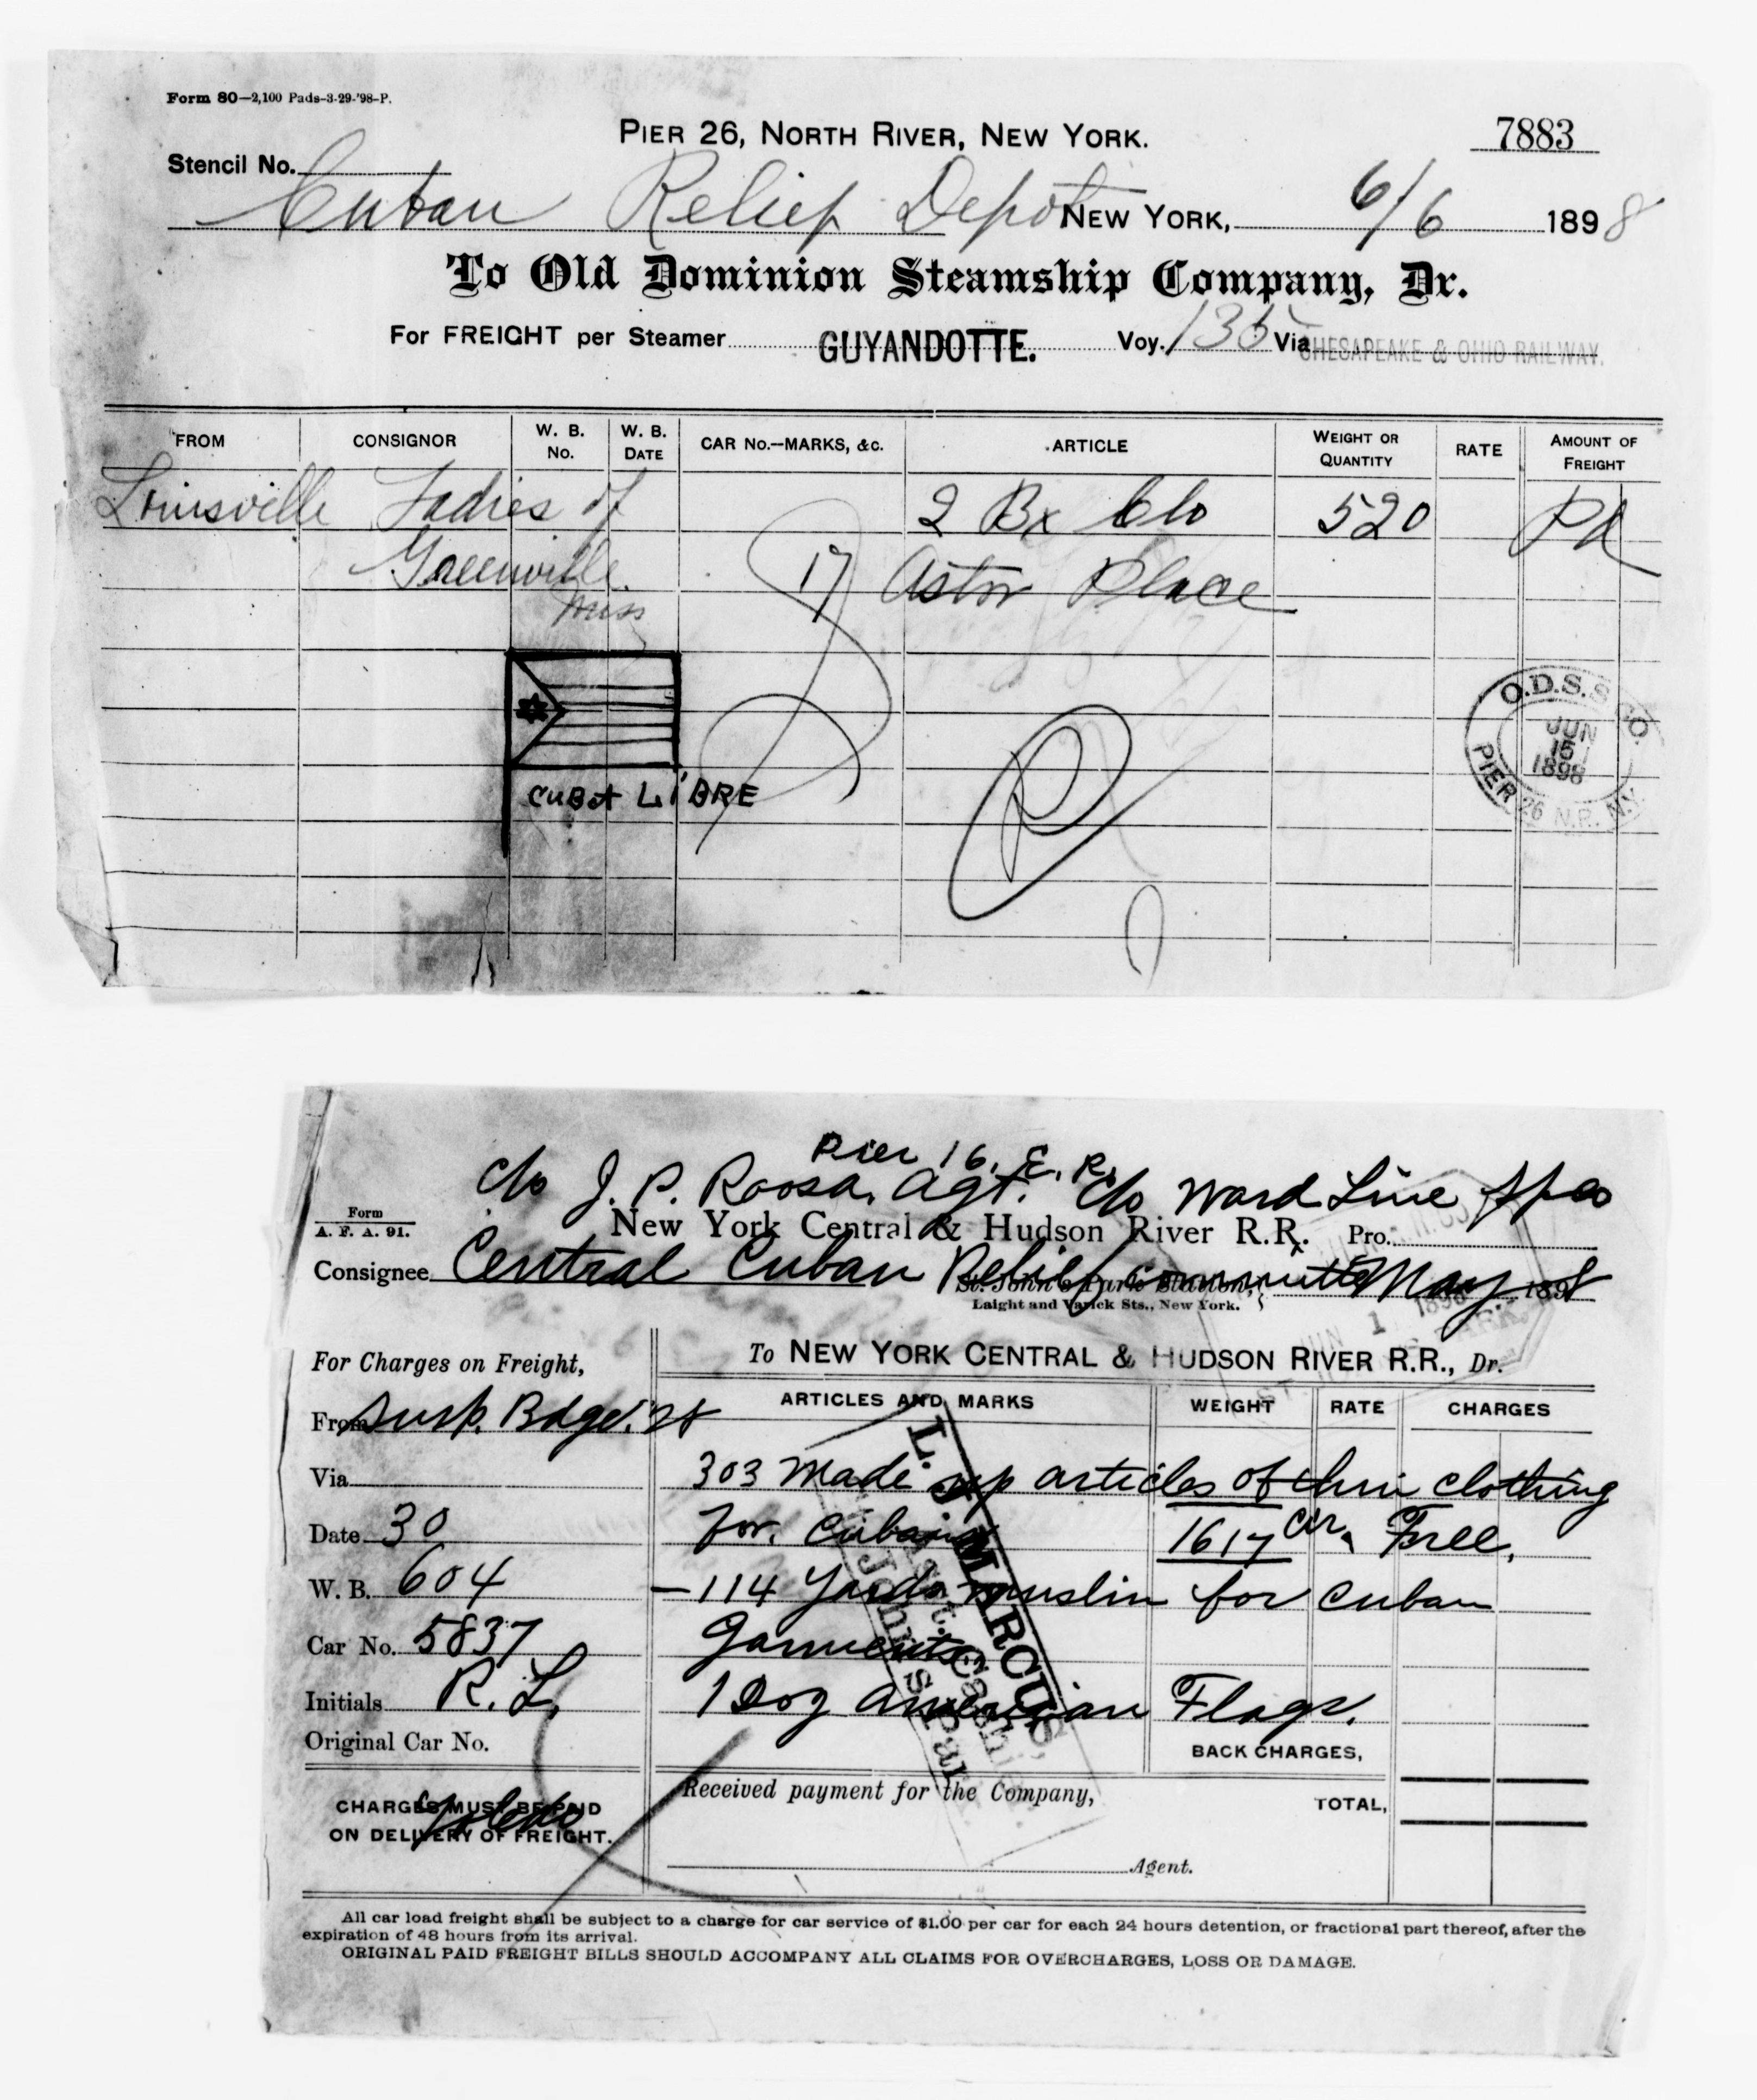 Form 80—2,100 Pads-3-29-'98-P.
PIER 26, NORTH RIVER, NEW YORK.
7883
Stencil No.
Cuban Relief Depot NEW YORK, 6/6 1898
To Old Dominion Steamship Company, Dr.
For FREIGHT per Steamer GUYANDOTTE. Voy. 135 Via CHESAPEAKE & OHIO RAILWAY.
FROM CONSIGNOR W. B. No. W. B. DATE CAR No.—MARKS, &c. ARTICLE WEIGHT OR QUANTITY RATE AMOUNT OF FREIGHT
Louisville Ladies of 2 Bx Clo 520 Pd
Greenville 17 Astor Place
Miss
CUBA LIBRE
O.D.S.S. CO.
JUN
15
1898
PIER 26 N.R. N.Y.
Pier 16, E. R.
c/o J. P. Roosa, Agt. c/o Ward Line
Form
A. F. A. 91.
New York Central & Hudson River R.R. Pro.
Consignee Central Cuban Relief Committee May 1898
St. John's Park Station,
Laight and Varick Sts., New York.
JUN 1 1898
For Charges on Freight,
To NEW YORK CENTRAL & HUDSON RIVER R.R., Dr.
ARTICLES AND MARKS WEIGHT RATE CHARGES
From Susp. Bdge.
Via
303 Made up articles of clothing
Date 30
for Cubans 1617 Free.
W. B. 604
—114 Yards muslin for Cuban
Car No. 5837
Garments
Initials R. L.
1 Doz American Flags.
Original Car No.
BACK CHARGES,
L. J. MARCUS,
CHARGES MUST BE PAID
ON DELIVERY OF FREIGHT.
Toledo
Received payment for the Company,
TOTAL,
Agent.
All car load freight shall be subject to a charge for car service of $1.00 per car for each 24 hours detention, or fractional part thereof, after the
expiration of 48 hours from its arrival.
ORIGINAL PAID FREIGHT BILLS SHOULD ACCOMPANY ALL CLAIMS FOR OVERCHARGES, LOSS OR DAMAGE.